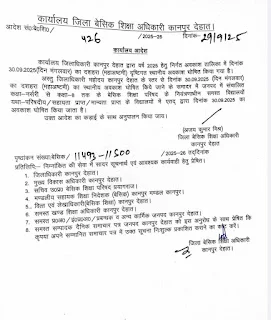 कार्यालय जिला बेसिक शिक्षा अधिकारी कानपुर देहात।
आदेश सं0/बेसिक/ 426 /2025-26 दिनांक- 29/9/25
कार्यालय आदेश
कार्यालय जिलाधिकारी कानपुर देहात द्वारा वर्ष 2025 हेतु निर्गत अवकाश तालिका में दिनांक
30.09.2025(दिन मंगलवार) का दशहरा (महाअष्टमी) का स्थानीय अवकाश घोषित किया गया है।
अस्तु जिलाधिकारी महोदय कानपुर देहात के स्तर से दिनांक 30.09.2025(दिन मंगलवार)
का दशहरा (महाअष्टमी) का स्थानीय अवकाश घोषित किये जाने से समादर में जनपद में संचालित
कक्षा-नर्सरी से कक्षा-8 तक के बेसिक शिक्षा परिषद के नियंत्रणाधीन समस्त विद्यालयों
यथा-परिषदीय/सहायता प्राप्त/मान्यता प्राप्त के विद्यालयों में एतद् द्वारा दिनांक 30.09.2025 का
अवकाश घोषित किया जाता है।
उक्त आदेश का कड़ाई के साथ अनुपालन किया जाय।
(अजय कुमार मिश्र)
जिला बेसिक शिक्षा अधिकारी
कानपुर देहात।
पृष्ठांकन संख्या:बेसिक/ 11493-11500 /2025-26 तद्दिनांक
प्रतिलिपि:- निम्नांकित की सेवा में सादर सूचनार्थ एवं आवश्यक कार्यवाही हेतु प्रेषित।
1. जिलाधिकारी कानपुर देहात।
2. मुख्य विकास अधिकारी कानपुर देहात।
3. सचिव उ0प्र0 बेसिक शिक्षा परिषद प्रयागराज।
4. मण्डलीय सहायक शिक्षा निदेशक (बेसिक) कानपुर मण्डल कानपुर।
5. वित्त एवं लेखाधिकारी(बेसिक शिक्षा) कानपुर देहात।
6. समस्त खण्ड शिक्षा अधिकारी कानपुर देहात।
7. समस्त प्र0अ0/इं0प्र0अ0/प्रबन्धक व अन्य कार्मिक जनपद कानपुर देहात।
8. समस्त सम्पादक दैनिक समाचार पत्र जनपद कानपुर देहात को इस अनुरोध से साथ प्रेषित कि
कृपया अपने सम्मानित समाचार पत्र में उक्त सूचना निःशुल्क प्रकाशित कराने का कष्ट करें।
जिला बेसिक शिक्षा अधिकारी
कानपुर देहात।